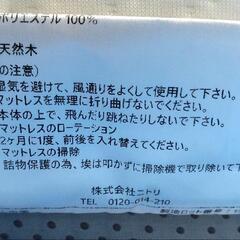 ポリエステル 100%
天然木
の注意)
湿気を避けて、風通りをよくして使用して下さい。
マットレスを無理に折り曲げないでください。
本体の上で、飛んだり跳ねたりしないで下さい。
マットレスのローテーション
2ヶ月に1度、前後を入れ替えて下さい。
マットレスの掃除
詰物保護の為、埃は叩かずに掃除機で取り除いて下
株式会社ニトリ
TEL 0120-014-210
製造ロット番号